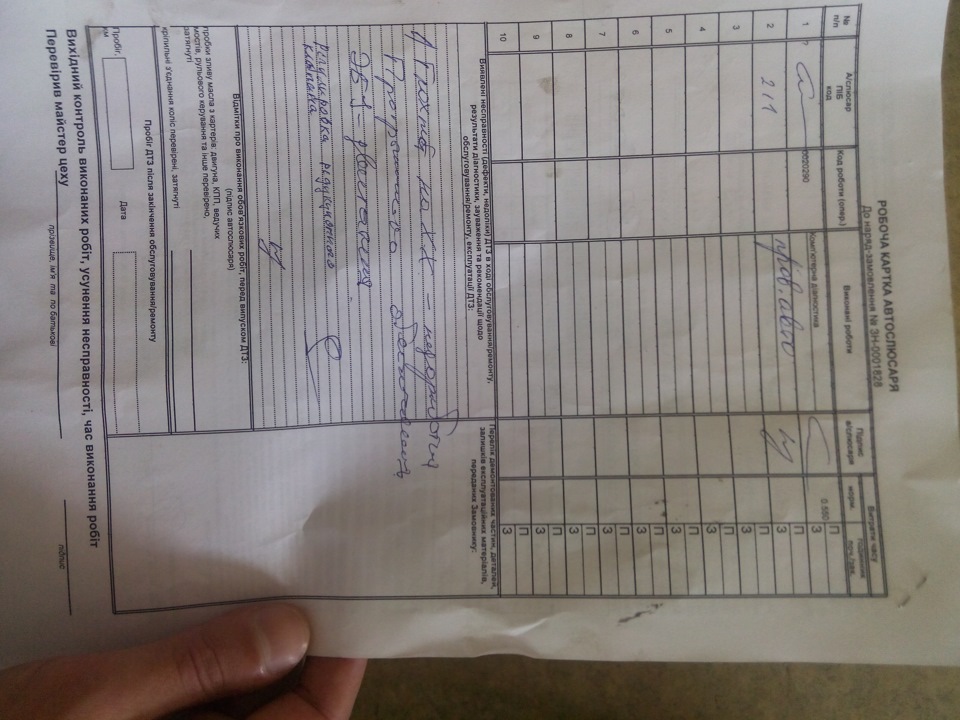 РОБОЧА КАРТКА АВТОСЛЮСАРЯ
До наряд-замовлення № ЗН-0001828
№ п/п
А/слюсар ПІБ код
Код роботи (опер.)
Виконані роботи
Підпис а/слюсаря
Витрати часу
норм.
годинник поч./зак.
1
0020290
Комп'ютерна діагностика
0.550
П
З
2
211
П
З
3
П
З
4
П
З
5
П
З
6
П
З
7
П
З
8
П
З
9
П
З
10
П
З
Виявлені несправності (дефекти, недоліки) ДТЗ в ході обслуговування/ремонту,
результати діагностики, зауваження та рекомендації щодо
обслуговування/ремонту, експлуатації ДТЗ:
Перелік демонтованих частин, деталей,
залишків експлуатаційних матеріалів,
переданих Замовнику:
на ХХ -
регулировка редукционного
клапана
Відмітки про виконання обов'язкових робіт, перед випуском ДТЗ:
(підпис автослюсаря)
пробки зливу масла з картерів: двигуна, КПП, ведучих
мостів, рульового керування та інше перевірено,
затягнуті
кріпильні з'єднання коліс перевірені, затягнуті
Пробіг ДТЗ після закінчення обслуговування/ремонту
Пробіг, км
Дата
Вихідний контроль виконаних робіт, усунення несправності, час виконання робіт
Перевірив майстер цеху
прізвище, ім'я та по батькові
підпис